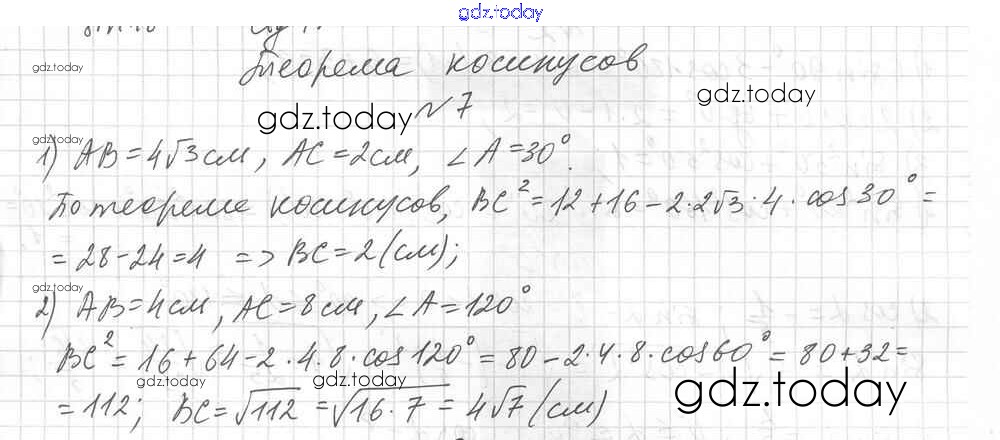 gdz.today
gdz.today
Теорема косинусов
gdz.today
gdz.today
№7
gdz.today
1) AB=4√3см, AC=2см, ∠A=30°.
gdz.today
По теореме косинусов, BC²=12+16-2·2√3·4·cos30°=
=28-24=4 => BC=2(см);
gdz.today
2) AB=4см, AC=8см, ∠A=120°
BC²=16+64-2·4·8·cos120°=80-2·4·8·cos60°=80+32=
gdz.today
gdz.today
gdz.today
=112; BC=√112=√16·7=4√7(см)